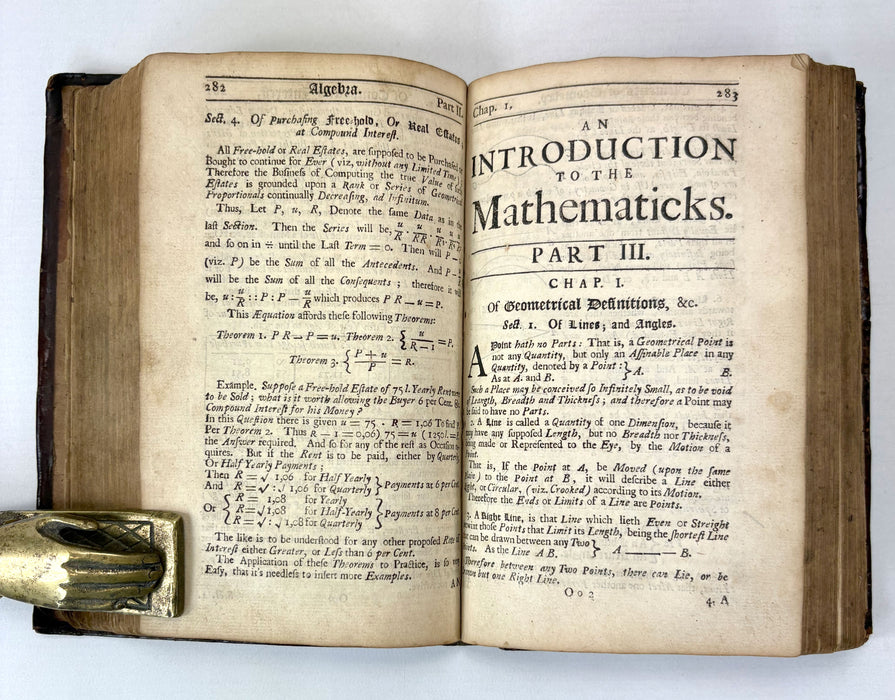 282 Algebra. Part II.
Sect. 4. Of Purchasing Free-hold, Or Real Estates;
at Compound Interest.
All Free-hold or Real Estates, are supposed to be Purchased or
Bought to continue for Ever (viz, without any Limited Time.)
Therefore the Business of Computing the true Value of such
Estates is grounded upon a Rank or Series of Geometrical
Proportionals continually Decreasing, ad Infinitum.
Thus, Let P, u, R, Denote the same Data as in the
last Section. Then the Series will be, u/R . u/RR . u/R³ .
and so on in ∺ until the Last Term = 0. Then will P −
(viz. P) be the Sum of all the Antecedents. And P − u/R
will be the Sum of all the Consequents; therefore it will
be, u : u/R :: P : P − u/R which produces P R − u = P.
This Æquation affords these following Theorems:
Theorem 1. P R − P = u. Theorem 2. { u/R − 1 = P.
Theorem 3. { P + u/P = R.
Example, Suppose a Free-hold Estate of 75 l. Yearly Rent were
to be Sold; what is it worth allowing the Buyer 6 per Cent.
Compound Interest for his Money?
In this Question there is given u = 75 . R = 1,06 To find P.
Per Theorem 2. Thus R − 1 = 0,06) 75 = u (1250 l. =
the Answer required. And so for any of the rest as Occasion
quires. But if the Rent is to be paid, either by Quarterly,
Or Half Yearly Payments;
Then R = √ 1,06 for Half Yearly
And R = √ : √ 1,06 for Quarterly } Payments at 6 per Cent.
Or { R = 1,08 for Yearly
R = √ : 1,08 for Half-Yearly } Payments at 8 per Cent.
R = √ : √ 1,08 for Quarterly
The like is to be understood for any other proposed Rate of
Interest either Greater, or Less than 6 per Cent.
The Application of these Theorems to Practice, is so very
Easy, that it's needless to insert more Examples.
AN
Chap. 1. 283
AN
INTRODUCTION
TO THE
Mathematicks.
PART III.
CHAP. I.
Of Geometrical Definitions, &c.
Sect. 1. Of Lines; and Angles.
A Point hath no Parts: That is, a Geometrical Point is
not any Quantity, but only an Assinable Place in any
Quantity, denoted by a Point: }
As at A. and B. } A. B.
Such a Place may be conceived so Infinitely Small, as to be void
of Length, Breadth and Thickness; and therefore a Point may
be said to have no Parts.
2. A Line is called a Quantity of one Dimension, because it
may have any supposed Length, but no Breadth nor Thickness,
being made or Represented to the Eye, by the Motion of a
Point.
That is, If the Point at A, be Moved (upon the same
Plane) to the Point at B, it will describe a Line either
Right, or Circular, (viz. Crooked) according to its Motion.
Therefore the Ends or Limits of a Line are Points.
3. A Right Line, is that Line which lieth Even or Streight
betwixt those Points that Limit its Length, being the shortest Line
that can be drawn between any Two }
Points. As the Line A B, } A ——— B.
Therefore between any Two Points, there can Lie, or be
drawn but one Right Line.
O o 2 4. A